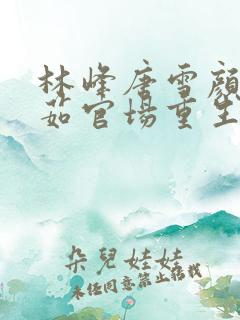 林峰唐雪颜
茹官场重生
朵兒娃娃
未经同意禁止转载